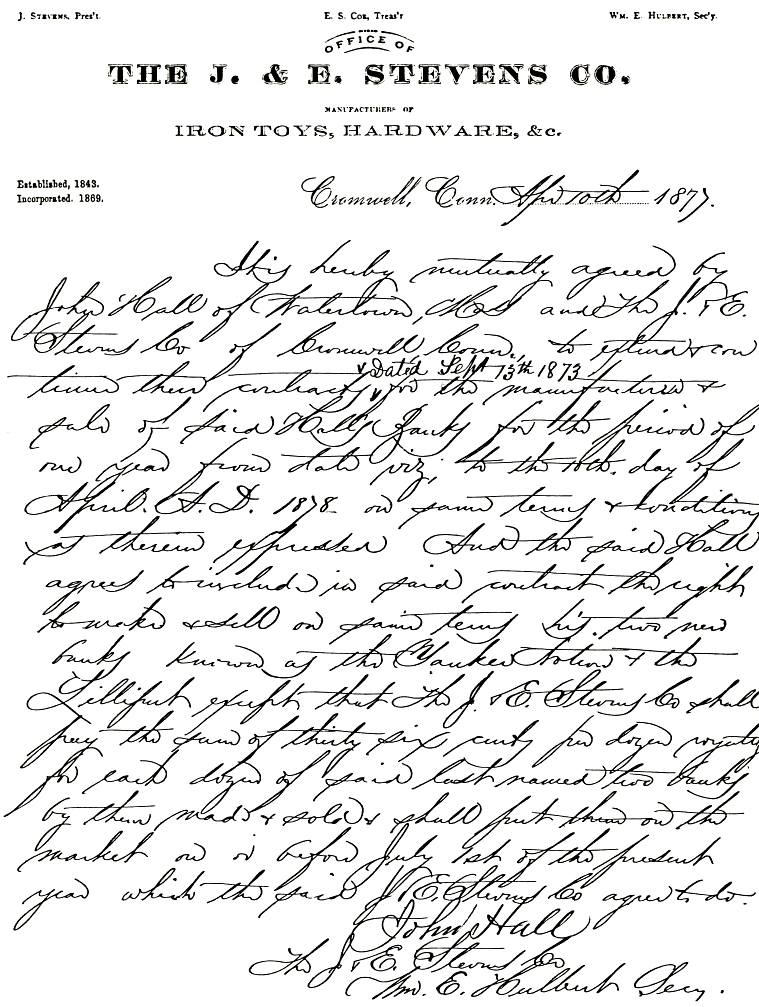 J. Stevens, Pres't.
E. S. Coe, Treas'r
Wm. E. Hulbert, Sec'y.
OFFICE OF
THE J. & E. STEVENS CO.
MANUFACTURERS OF
IRON TOYS, HARDWARE, &c.
Established, 1843.
Incorporated. 1869.
Cromwell, Conn. Apr 10th 1877.
It is hereby mutually agreed by
John Hall of Watertown, Mss and The J. & E.
Stevens Co of Cromwell Conn., to extend & con
Dated Sept 13th 1873
tinue their contract, for the manufacture &
sale of said Halls Banks for the period of
one year from date viz, to the 10th. day of
April. A. D. 1878 on same terms & conditions
as therein expressed And the said Hall
agrees to include in said contract the right
to make & sell on same terms his two new
banks known as the Yankee Notion & the
Lilliput except that The J. & E. Stevens Co shall
pay the sum of thirty six cents per dozen royalty
for each dozen of said last named two banks
by them made & sold & shall put them on the
market on or before July 1st of the present
year which the said J. & E. Stevens Co agree to do.
John Hall
The J. & E. Stevens Co
Wm. E. Hulbert Secy.